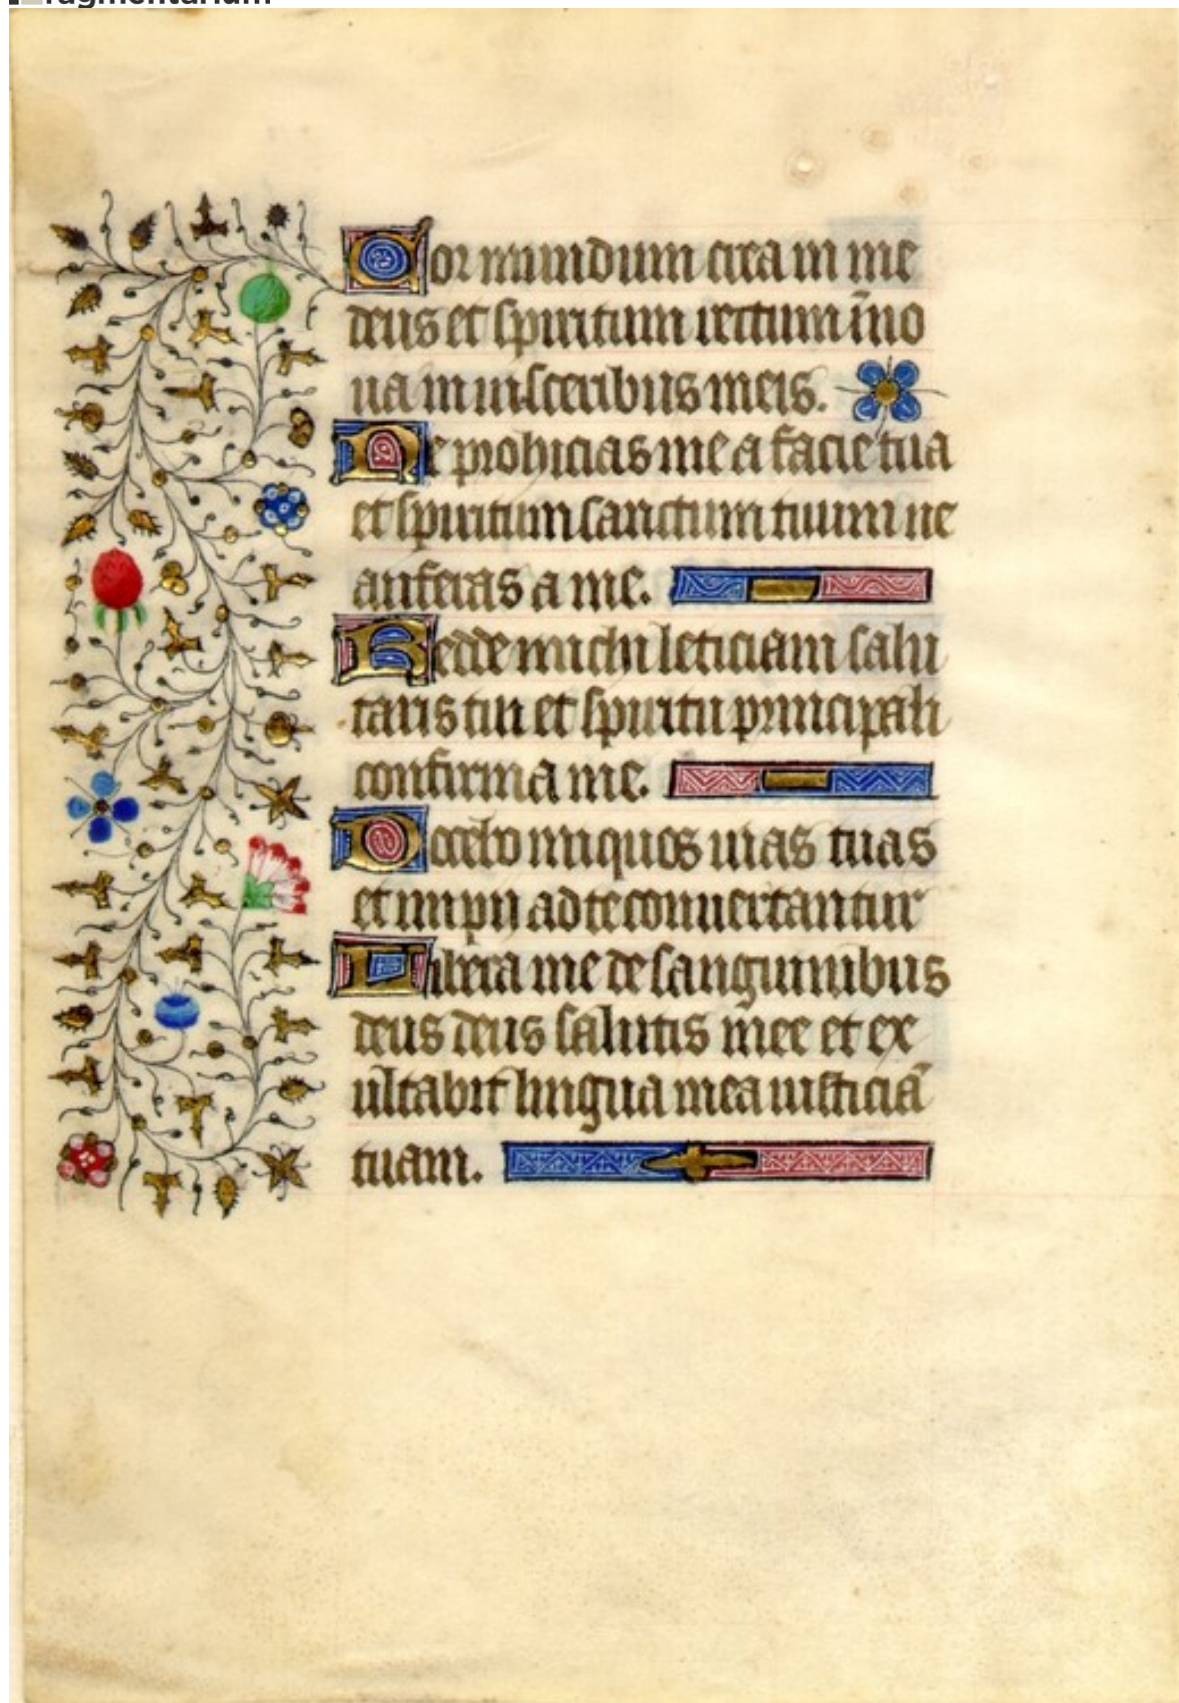 ragmentarium
Cor mundum crea in me
deus et spiritum rectum īno
ua in uisceribus meis.
Ne prohicias me a facie tua
et spiritum sanctum tuum ne
auferas a me.
Redde michi leticiam salu
taris tui et spiritu principali
confirma me.
Docebo iniquos uias tuas
et impii ad te conuertantur
Libera me de sanguinibus
deus deus salutis mee et ex
ultabit lingua mea iusticiā
tuam.